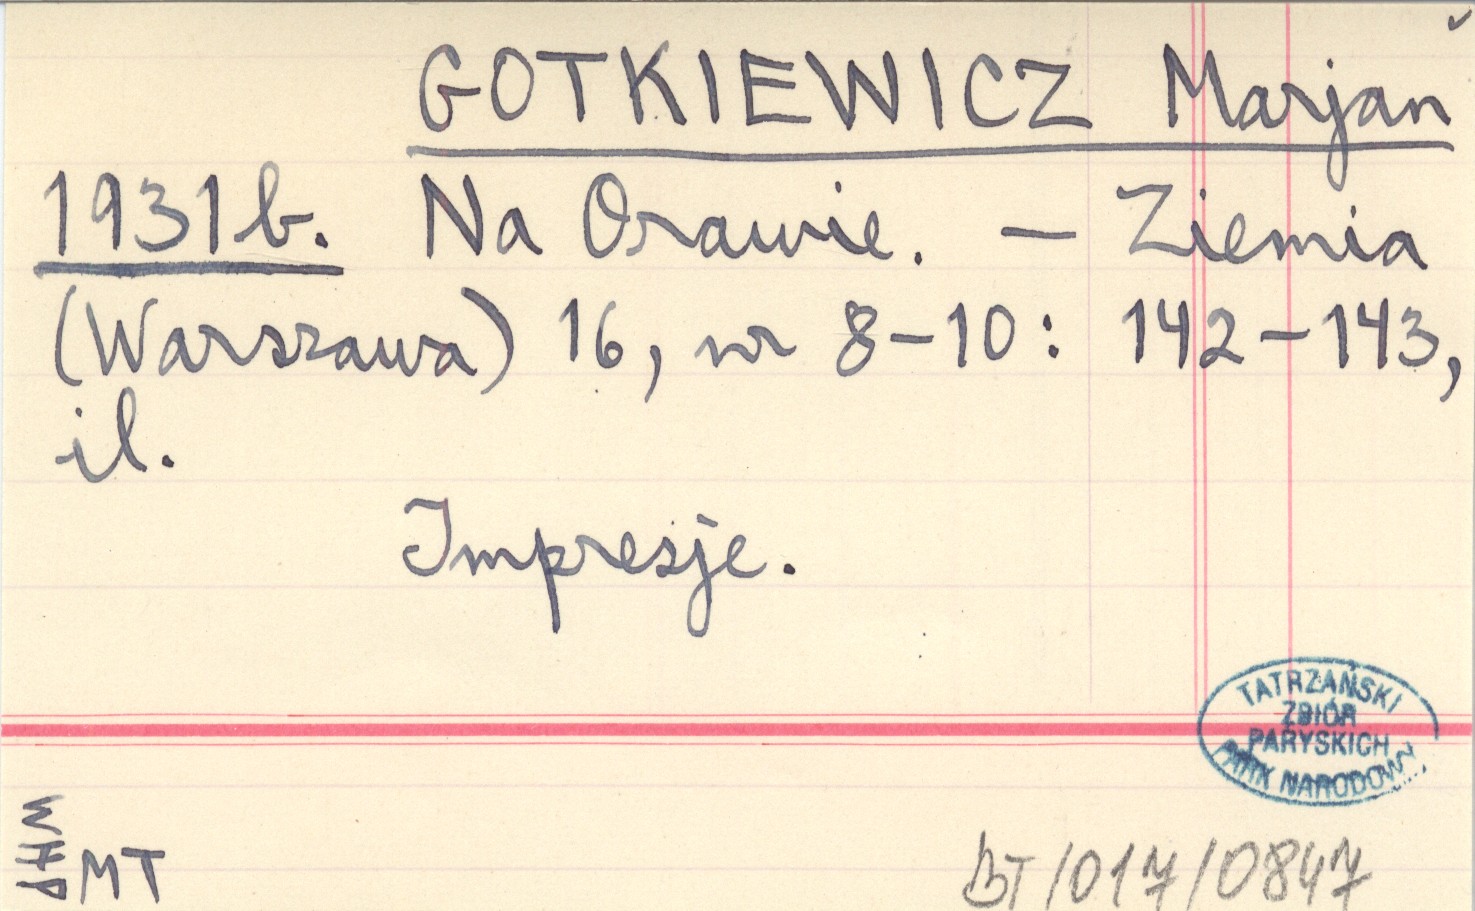 GOTKIEWICZ Marjan
1931b. Na Orawie. – Ziemia
(Warszawa) 16, nr 8–10: 142–143,
il.
Impresje.
TATRZAŃSKI
ZBIÓR
PARYSKICH
PARK NARODOWY
WHP
MT
BT/017/0847